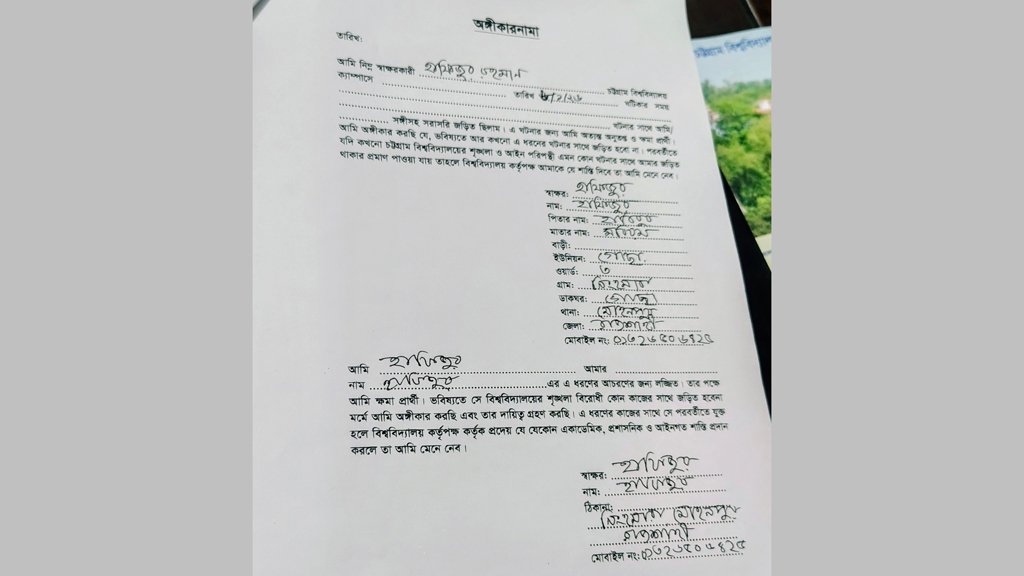 অঙ্গীকারনামা
তারিখ:
আমি নিম্ন স্বাক্ষরকারী হাফিজুর রহমান
ক্যাম্পাসে চট্টগ্রাম বিশ্ববিদ্যালয়
তারিখ ঘটিকার সময়
ঘটনার সাথে আমি/
সঙ্গীসহ সরাসরি জড়িত ছিলাম। এ ঘটনার জন্য আমি অত্যন্ত অনুতপ্ত ও ক্ষমা প্রার্থী।
আমি অঙ্গীকার করছি যে, ভবিষ্যতে আর কখনো এ ধরনের ঘটনার সাথে জড়িত হবো না। পরবর্তীতে
যদি কখনো চট্টগ্রাম বিশ্ববিদ্যালয়ের শৃঙ্খলা ও আইন পরিপন্থী এমন কোন ঘটনার সাথে আমার জড়িত
থাকার প্রমাণ পাওয়া যায় তাহলে বিশ্ববিদ্যালয় কর্তৃপক্ষ আমাকে যে শাস্তি দিবে তা আমি মেনে নেব।
স্বাক্ষর: হাফিজুর
নাম: হাফিজুর
পিতার নাম:
মাতার নাম:
বাড়ী:
ইউনিয়ন:
ওয়ার্ড: ৩
গ্রাম:
ডাকঘর:
থানা: মোহনপুর
জেলা: রাজশাহী
মোবাইল নং:
আমি হাফিজুর আমার
নাম হাফিজুর এর এ ধরণের আচরণের জন্য লজ্জিত। তার পক্ষে
আমি ক্ষমা প্রার্থী। ভবিষ্যতে সে বিশ্ববিদ্যালয়ের শৃঙ্খলা বিরোধী কোন কাজের সাথে জড়িত হবেনা
মর্মে আমি অঙ্গীকার করছি এবং তার দায়িত্ব গ্রহণ করছি। এ ধরণের কাজের সাথে সে পরবর্তীতে যুক্ত
হলে বিশ্ববিদ্যালয় কর্তৃপক্ষ কর্তৃক প্রদেয় যে যেকোন একাডেমিক, প্রশাসনিক ও আইনগত শাস্তি প্রদান
করলে তা আমি মেনে নেব।
স্বাক্ষর: হাফিজুর
নাম: হাফিজুর
ঠিকানা:
মোহনপুর
রাজশাহী
মোবাইল নং:
চট্টগ্রাম বিশ্ববিদ্যাল